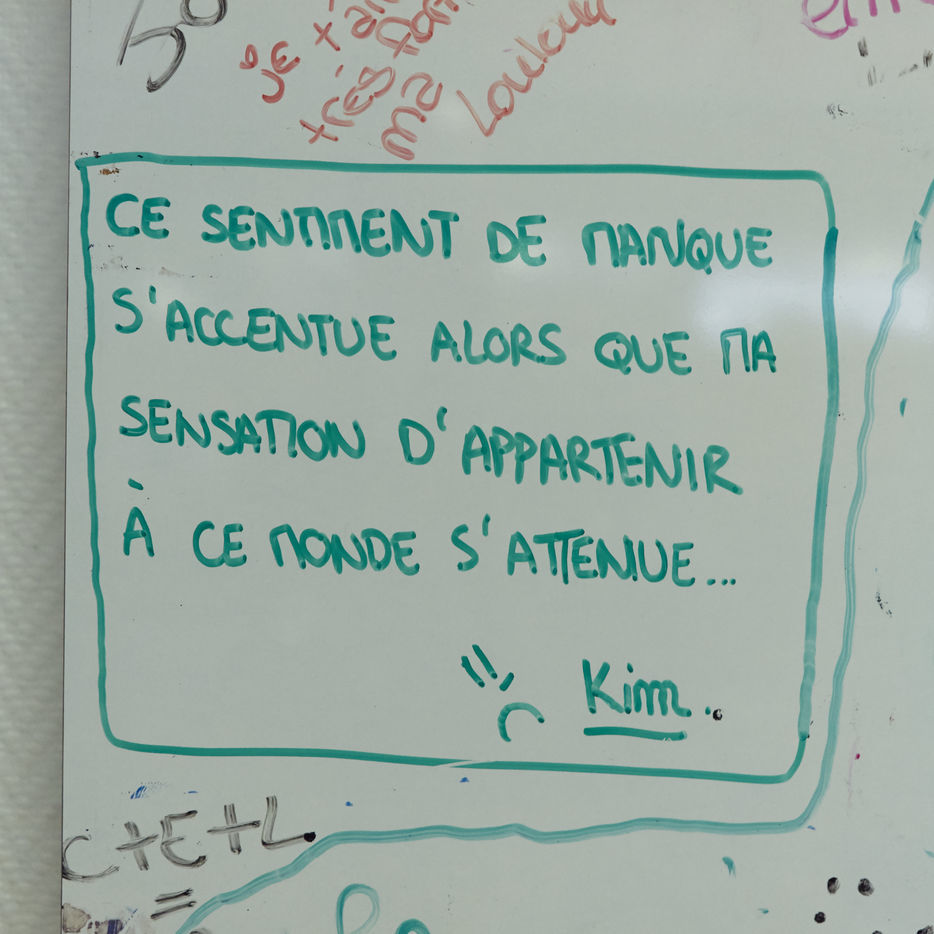 Je t'aime
très fort
ma
Louloute
CE SENTIMENT DE MANQUE
S'ACCENTUE ALORS QUE MA
SENSATION D'APPARTENIR
À CE MONDE S'ATTENUE...
Kim.
C+E+L
=